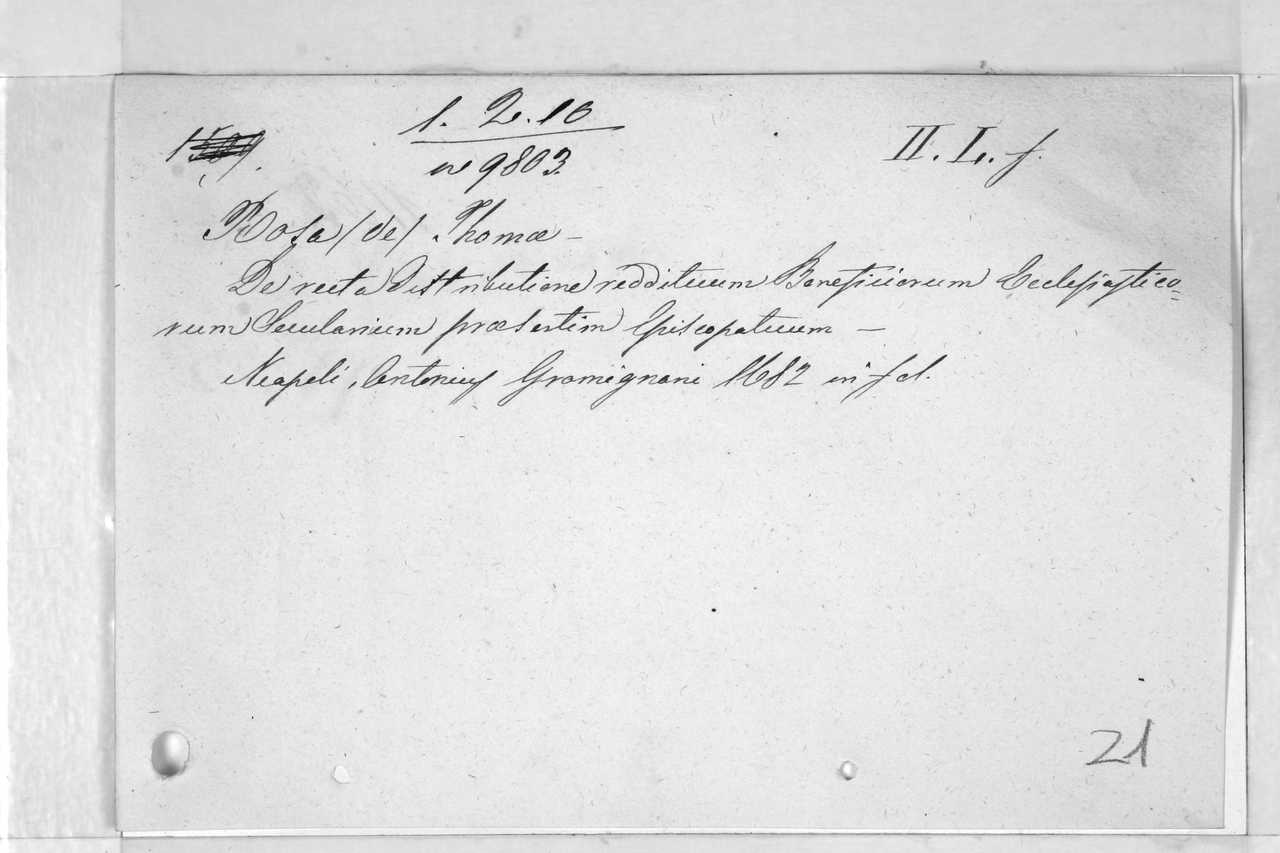 1. 2. 10
n 9803.
II. L. f.
Rosa (de) Thomæ –
De recta distributione reddituum Beneficiorum Ecclesiastico-
rum Secularium præsertim Episcopatuum –
Neapoli, Antonius Gramignani 1682 in fol.
21